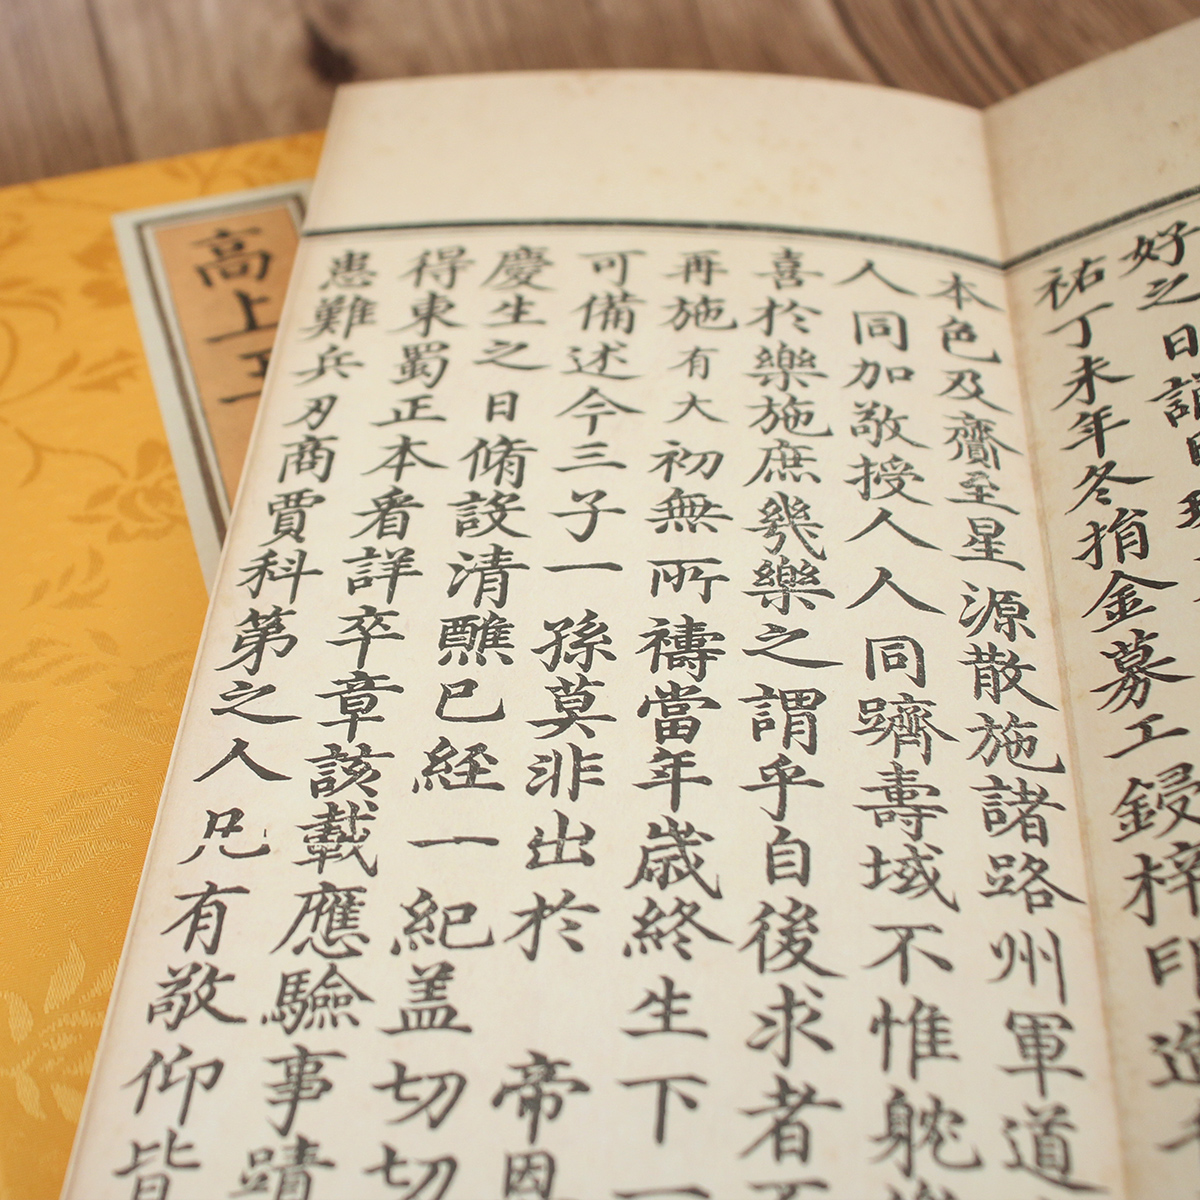 好之日
祐丁未年冬捐金募工鋟梓印造
本色及齎至星源散施諸路州軍道
人同加敬授人人同躋壽域不惟躭
喜於樂施庶幾樂之謂乎自後求者不
再施有大初無所禱當年歳終生下一
可備述今三子一孫莫非出於帝恩
慶生之日脩設清醮已経一紀盖切切
得東蜀正本看詳卒章該載應驗事蹟
患難兵刃商賈科第之人咒有敬仰皆
高上玉